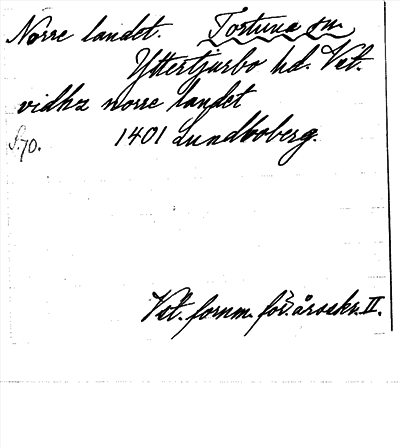 Norre landet. Tortuna sn.
Yttertjurbo hd. Vstm.
vidhz norre landet
S. 70. 1401 Lundboberg.
Vst. fornm. för. årsskr. II.